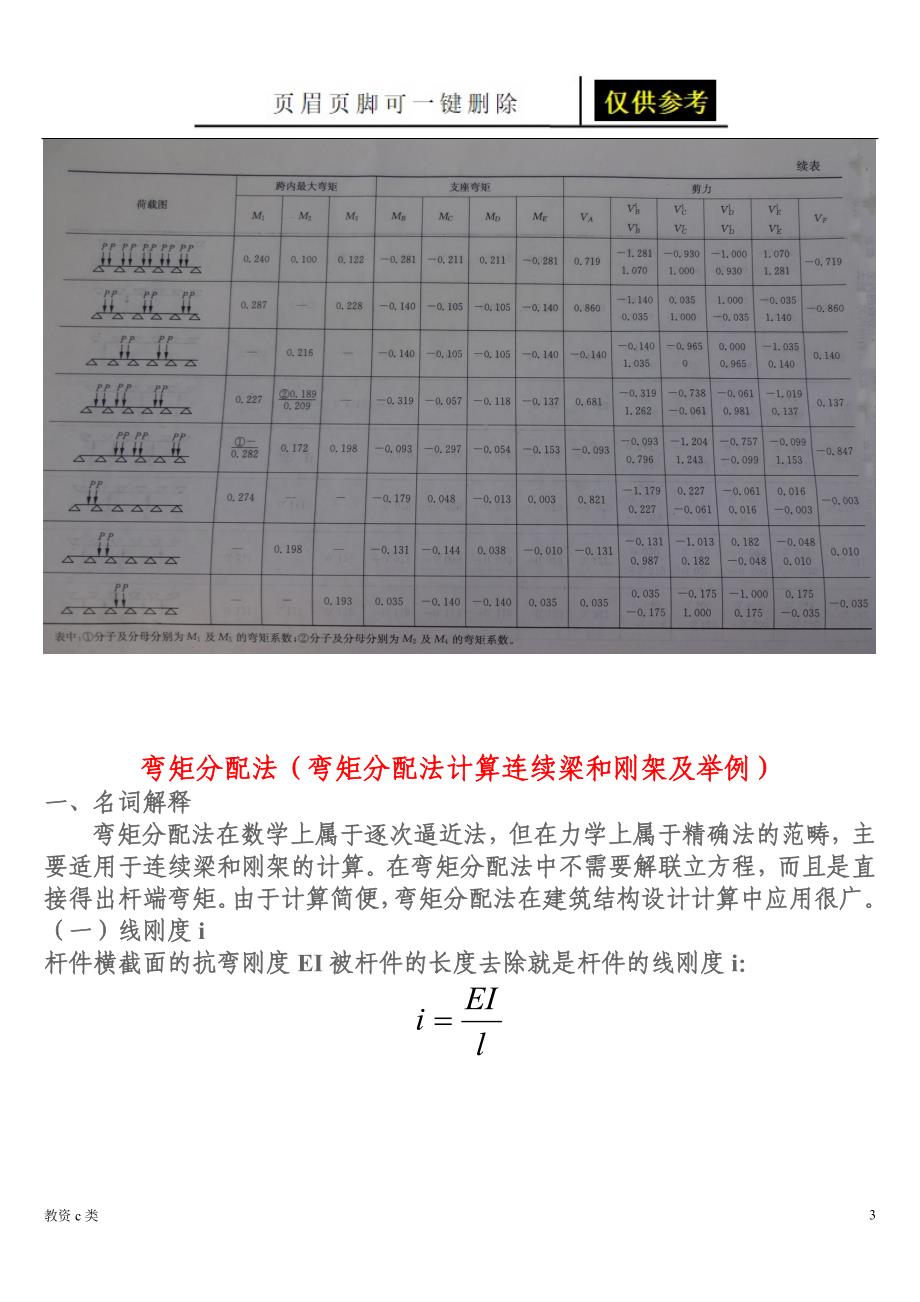 页眉页脚可一键删除 仅供参考
续表
荷载图 跨内最大弯矩 支座弯矩 剪力
M1 M2 M3 MB MC MD ME VA VlB VrB VlC VrC VlD VrD VlE VrE VF
PP PP PP PP PP 0.240 0.100 0.122 −0.281 −0.211 0.211 −0.281 0.719 −1.281 1.070 −0.930 1.000 −1.000 0.930 1.070 1.281 −0.719
PP PP PP 0.287 — 0.228 −0.140 −0.105 −0.105 −0.140 0.860 −1.140 0.035 0.035 1.000 1.000 −0.035 −0.035 1.140 −0.860
PP PP — 0.216 — −0.140 −0.105 −0.105 −0.140 −0.140 −0.140 1.035 −0.965 0 0.000 0.965 −1.035 0.140 0.140
PP PP PP 0.227 ②0.189 0.209 — −0.319 −0.057 −0.118 −0.137 0.681 −0.319 1.262 −0.738 −0.061 −0.061 0.981 −1.019 0.137 0.137
PP PP PP ①— 0.282 0.172 0.198 −0.093 −0.297 −0.054 −0.153 −0.093 −0.093 0.796 −1.204 1.243 −0.757 −0.099 −0.099 1.153 −0.847
PP 0.274 — — −0.179 0.048 −0.013 0.003 0.821 −1.179 0.227 0.227 −0.061 −0.061 0.016 0.016 −0.003 −0.003
PP — 0.198 — −0.131 −0.144 0.038 −0.010 −0.131 −0.131 0.987 −1.013 0.182 0.182 −0.048 −0.048 0.010 0.010
PP — — 0.193 0.035 −0.140 −0.140 0.035 0.035 0.035 −0.175 −0.175 1.000 −1.000 0.175 0.175 −0.035 −0.035
表中:①分子及分母分别为 M1 及 M5 的弯矩系数;②分子及分母分别为 M2 及 M4 的弯矩系数。
弯矩分配法（弯矩分配法计算连续梁和刚架及举例）
一、名词解释
弯矩分配法在数学上属于逐次逼近法，但在力学上属于精确法的范畴，主
要适用于连续梁和刚架的计算。在弯矩分配法中不需要解联立方程，而且是直
接得出杆端弯矩。由于计算简便，弯矩分配法在建筑结构设计计算中应用很广。
（一）线刚度 i
杆件横截面的抗弯刚度 EI 被杆件的长度去除就是杆件的线刚度 i:
i = EI / l
教资 c 类 3